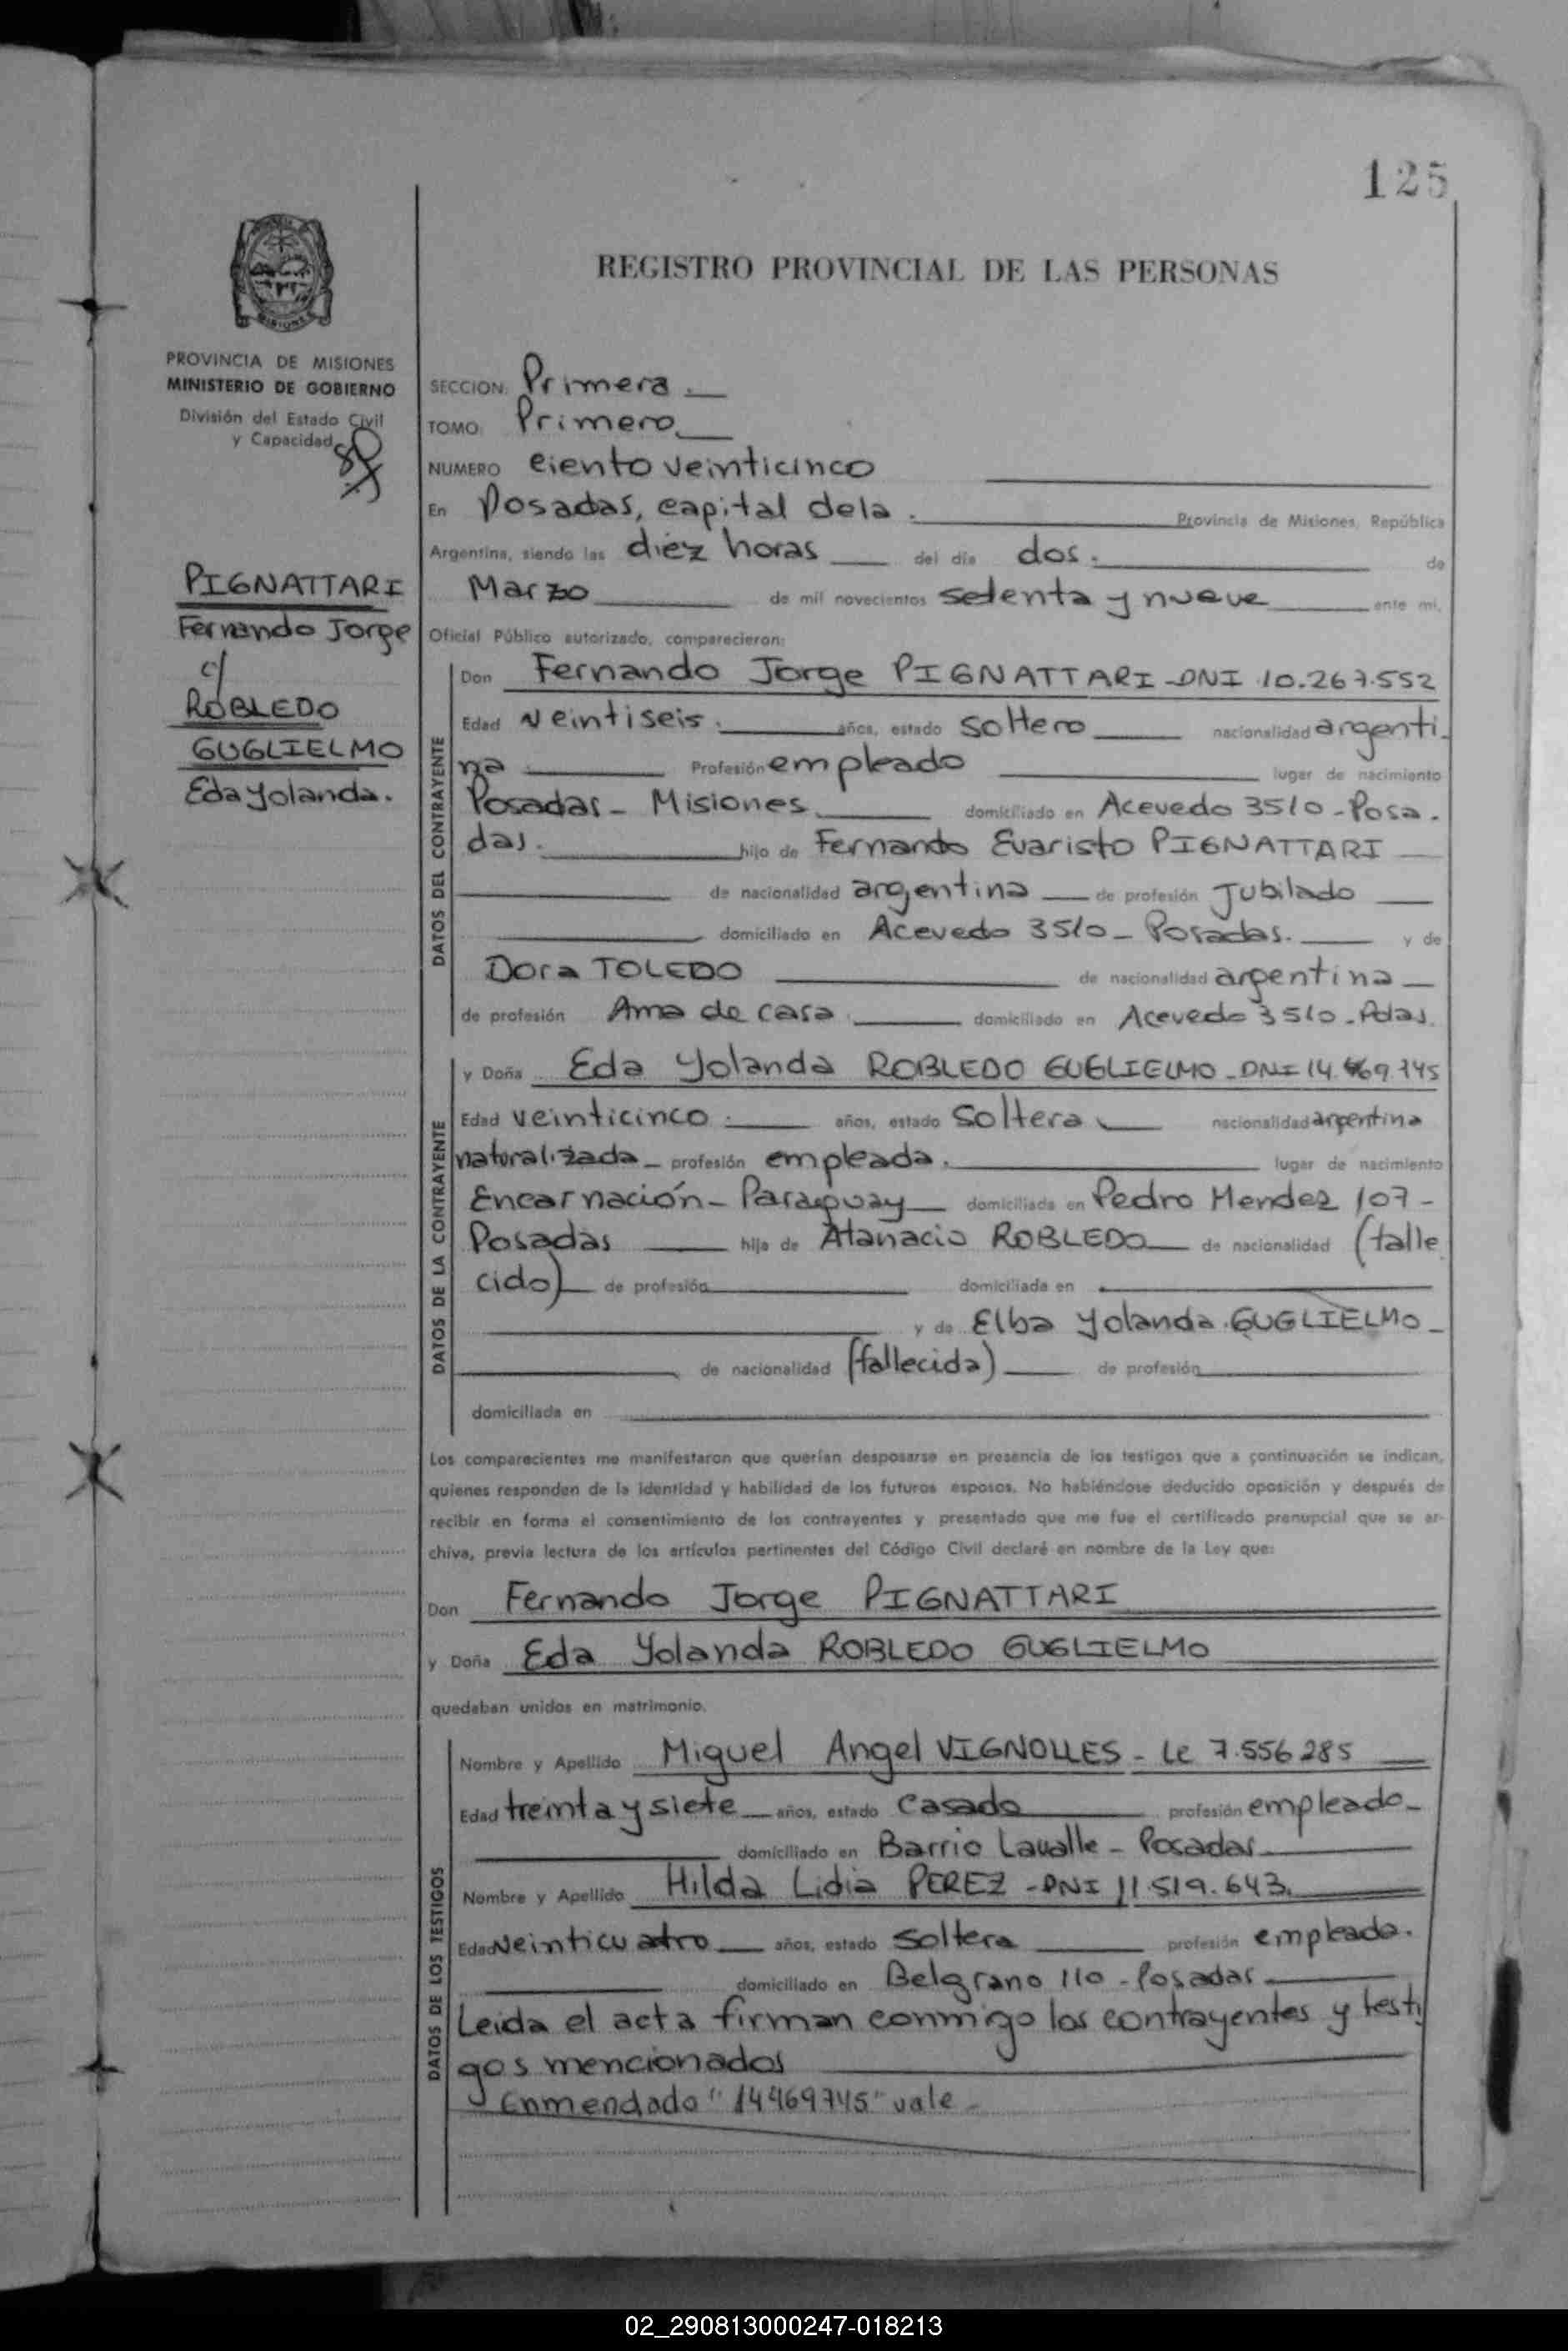 125
REGISTRO PROVINCIAL DE LAS PERSONAS
MISIONES
PROVINCIA DE MISIONES
MINISTERIO DE GOBIERNO
División del Estado Civil
y Capacidad
PIGNATTARI
Fernando Jorge
c/
ROBLEDO
GUGLIELMO
Eda Yolanda.
SECCION: Primera.
TOMO: Primero
NUMERO ciento veinticinco
En Posadas, capital de la. Provincia de Misiones, República
Argentina, siendo las diez horas del día dos. de
Marzo de mil novecientos setenta y nueve ante mi,
Oficial Público autorizado, comparecieron:
DATOS DEL CONTRAYENTE
Don Fernando Jorge PIGNATTARI - DNI 10.267.552
Edad veintiseis. años, estado soltero nacionalidad argenti-
na Profesión empleado lugar de nacimiento
Posadas - Misiones domiciliado en Acevedo 3510 - Posa-
das. hijo de Fernando Evaristo PIGNATTARI
de nacionalidad argentina de profesión Jubilado
domiciliado en Acevedo 3510 - Posadas. y de
Dora TOLEDO de nacionalidad argentina
de profesión Ama de casa domiciliado en Acevedo 3510 - Pdas.
DATOS DE LA CONTRAYENTE
y Doña Eda Yolanda ROBLEDO GUGLIELMO - DNI 14.469.745
Edad veinticinco. años, estado soltera nacionalidad argentina
naturalizada - profesión empleada. lugar de nacimiento
Encarnación - Paraguay domiciliada en Pedro Mendez 107 -
Posadas hija de Atanacio ROBLEDO de nacionalidad (falle
cido) de profesión domiciliada en
y de Elba Yolanda GUGLIELMO -
de nacionalidad (fallecida) de profesión
domiciliada en
Los comparecientes me manifestaron que querían desposarse en presencia de los testigos que a continuación se indican,
quienes responden de la identidad y habilidad de los futuros esposos. No habiéndose deducido oposición y después de
recibir en forma el consentimiento de los contrayentes y presentado que me fue el certificado prenupcial que se ar-
chiva, previa lectura de los artículos pertinentes del Código Civil declaré en nombre de la Ley que:
Don Fernando Jorge PIGNATTARI
y Doña Eda Yolanda ROBLEDO GUGLIELMO
quedaban unidos en matrimonio.
DATOS DE LOS TESTIGOS
Nombre y Apellido Miguel Angel VIGNOLLES - LE 7.556.285
Edad treinta y siete años, estado casado profesión empleado -
domiciliado en Barrio Lavalle - Posadas
Nombre y Apellido Hilda Lidia PEREZ - DNI 11.519.643.
Edad veinticuatro años, estado soltera profesión empleada.
domiciliado en Belgrano 110 - Posadas
Leida el acta firman conmigo los contrayentes y testi
gos mencionados
Enmendado "14469745" vale -
02_290813000247-018213